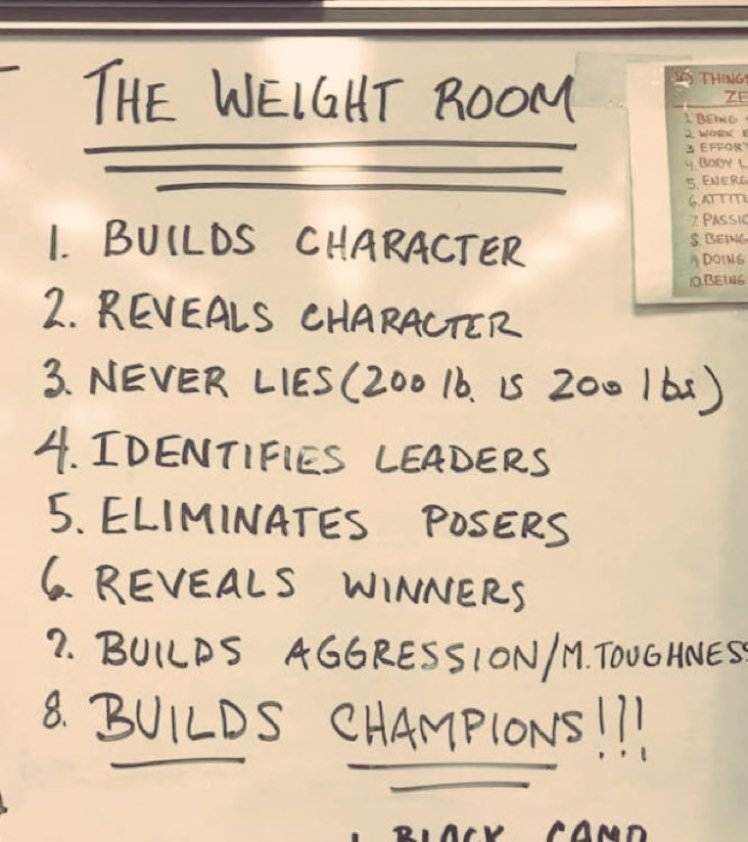 THE WEIGHT ROOM
1. BUILDS CHARACTER
2. REVEALS CHARACTER
3. NEVER LIES (200 lb. IS 200 lbs)
4. IDENTIFIES LEADERS
5. ELIMINATES POSERS
6. REVEALS WINNERS
7. BUILDS AGGRESSION/M.TOUGHNESS
8. BUILDS CHAMPIONS!!!
10 THINGS
ZE
1. BEING
2. WORK E
3 EFFORT
4. BODY L
5. ENERG
6. ATTITU
7. PASSIO
8. BEING
9 DOING
10. BEING
BLACK CAMP